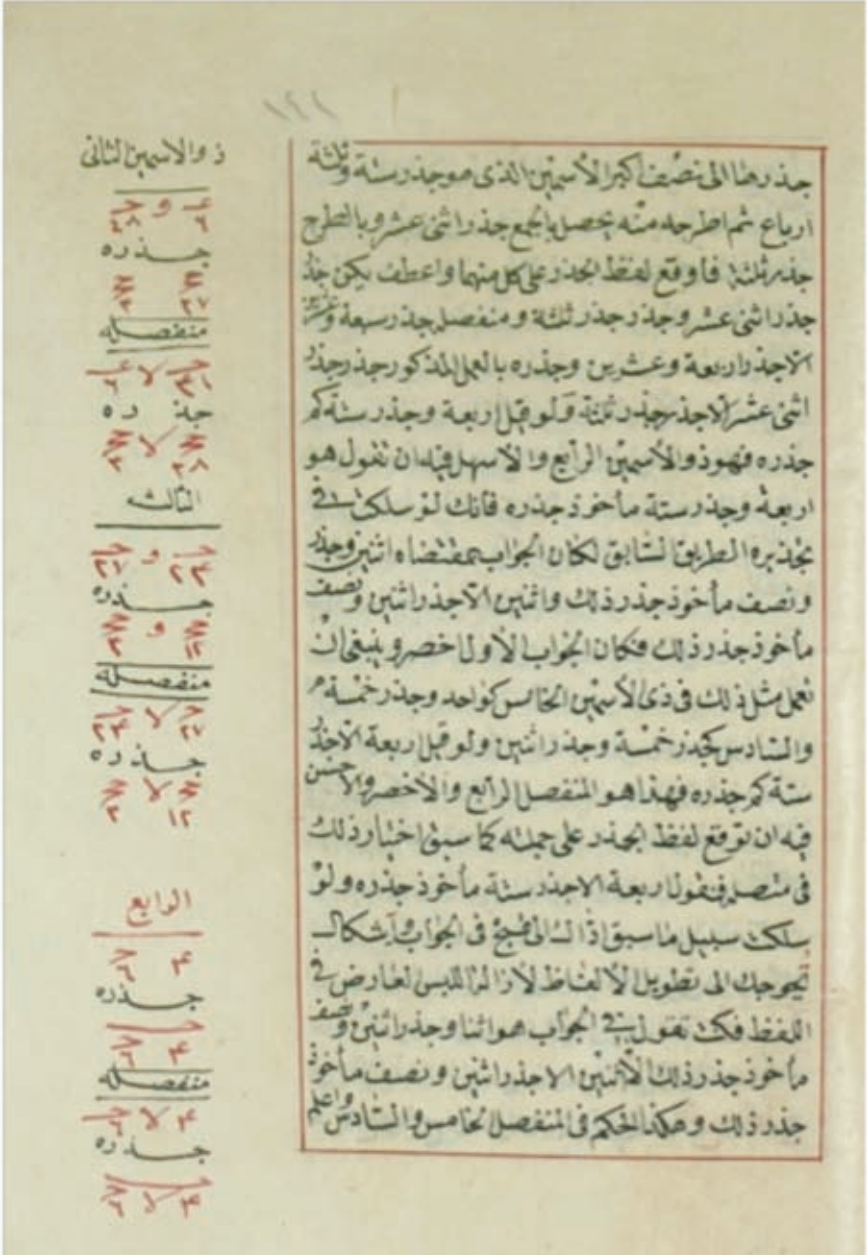 ١٤١
جذرها الى نصف اكبر الاسمين الذى هو جذر ستة وثلثة
ارباع ثم اطرحه منه يحصل بالجمع جذر اثنى عشر وبالطرح
جذر ثلثة فاوقع لفظ الجذر على كل منهما واعطف يكن جذر
جذر اثنى عشر وجذر جذر ثلثة ومنفصله جذر سبعة وعشرين
الا جذر اربعة وعشرين وجذره بالعمل المذكور جذر جذر
اثنى عشر الا جذر جذر ثلثة ولو قيل اربعة وجذر ستة كم
جذره فهو ذو الاسمين الرابع والاسهل فيه ان تقول هو
اربعة وجذر ستة مأخوذ جذره فانك لو سلكت فى
تجذيره الطريق السابق لكان الجواب بمقتضاه اثنين وجذر
ونصف مأخوذ جذر ذلك واثنين الا جذر اثنين ونصف
مأخوذ جذر ذلك فكان الجواب الاول اخصر وينبغى ان
تعمل مثل ذلك فى ذى الاسمين الخامس كواحد وجذر خمسة
والسادس كجذر خمسة وجذر اثنين ولو قيل اربعة الا جذر
ستة كم جذره فهذا هو المنفصل الرابع والاخصر والاحسن
فيه ان توقع لفظ الجذر على جملته كما سبق اختيار ذلك
فى متصله فتقول اربعة الا جذر ستة مأخوذ جذره ولو
سلكت سبيل ما سبق اداك الى قبح فى الجواب واشكال
يحوجك الى تطويل الالفاظ لازالة اللبس لعارض فى
اللفظ فكنت تقول فى الجواب هو اثنا وجذر اثنين ونصف
مأخوذ جذر ذلك الا اثنين الا جذر اثنين ونصف مأخوذ
جذر ذلك وهكذا الحكم فى المنفصل الخامس والسادس واعلم
ذو الاسمين الثانى
و
جذره
منفصله
لا
جذره
لا
الثالث
و
جذره
و
منفصله
لا
جذره
لا
الرابع
جذره
منفصله
لا
جذره
لا